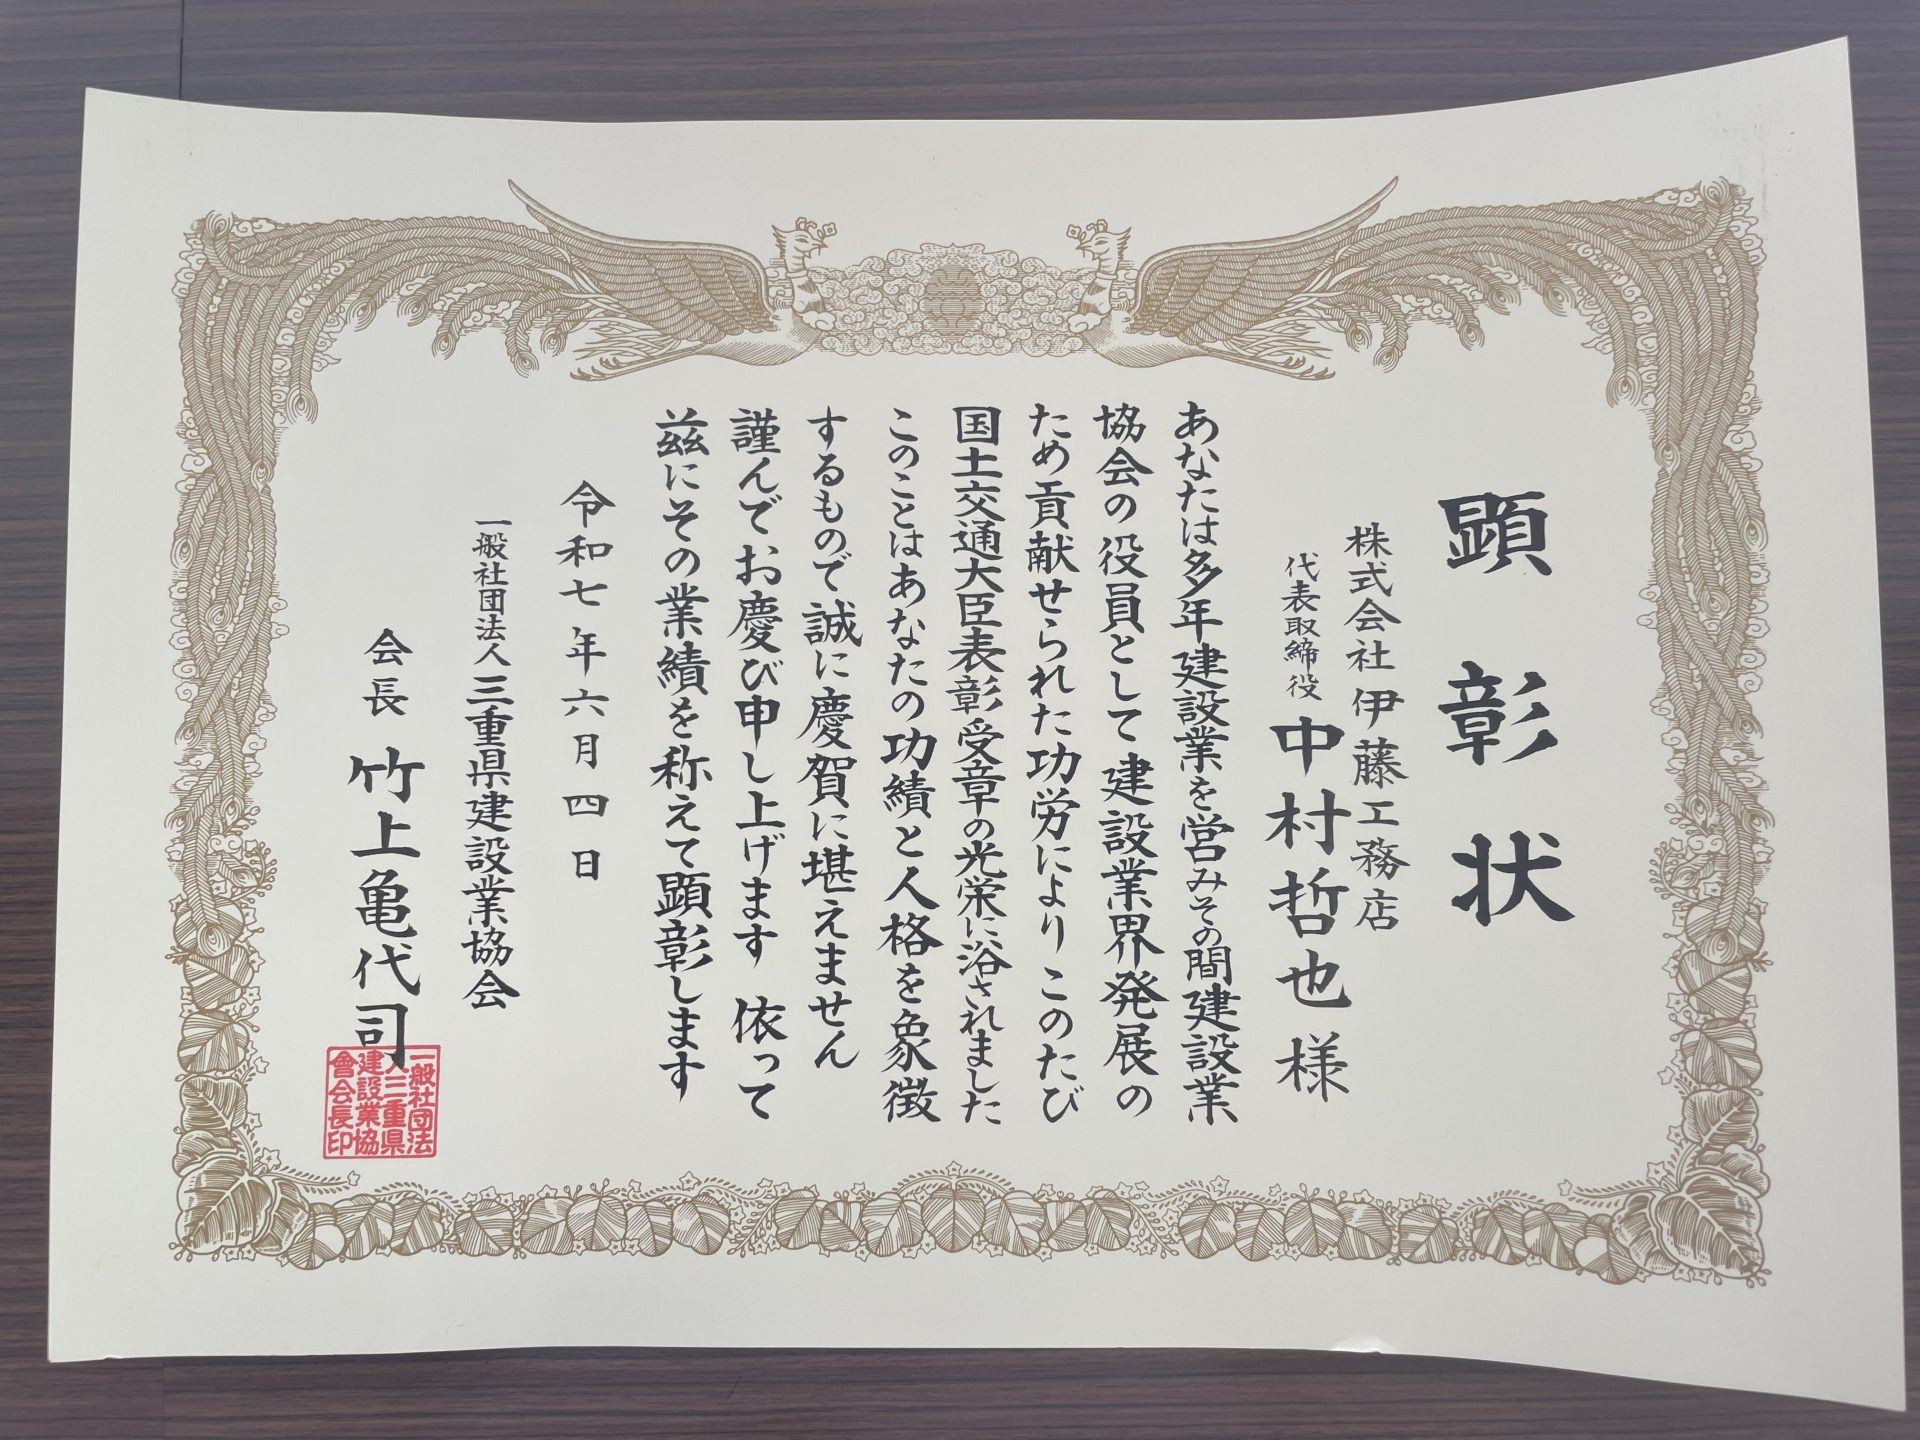 顕彰状
株式会社伊藤工務店
代表取締役 中村哲也様
あなたは多年建設業を営みその間建設業
協会の役員として建設業界発展の
ため貢献せられた功労によりこのたび
国土交通大臣表彰受章の光栄に浴されました
このことはあなたの功績と人格を象徴
するもので誠に慶賀に堪えません
謹んでお慶び申し上げます 依って
茲にその業績を称えて顕彰します
令和七年六月四日
一般社団法人三重県建設業協会
会長 竹上亀代司
一般社団法
人三重県
建設業協
會会長印